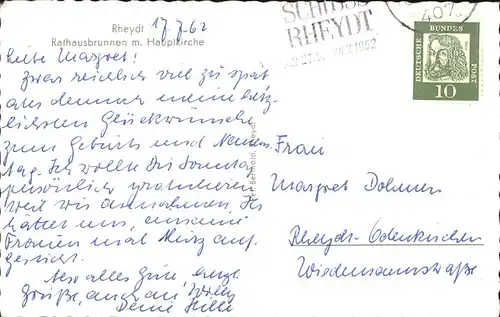 Rheydt
Rathausbrunnen m. Hauptkirche
17.7.62
SCHLOSS
RHEYDT
407
DEUTSCHE BUNDESPOST
10
Liebe Margret!
Zwar reichlich viel zu spät
aus dennoch meine herz-
lichsten Glückwünsche
zum Geburts und Namens
tag. Ich wollte Dir Sonntag
persönlich gratulieren
weil wir annahmen, Ihr
hättet uns,
Frauen mal auf-
gesucht.
Also alles Gute, 
Grüße, auch an Willy
Deine Hilde
Frau
Margret Dohmen
Rheydt-Odenkirchen
Wiedemannstraße